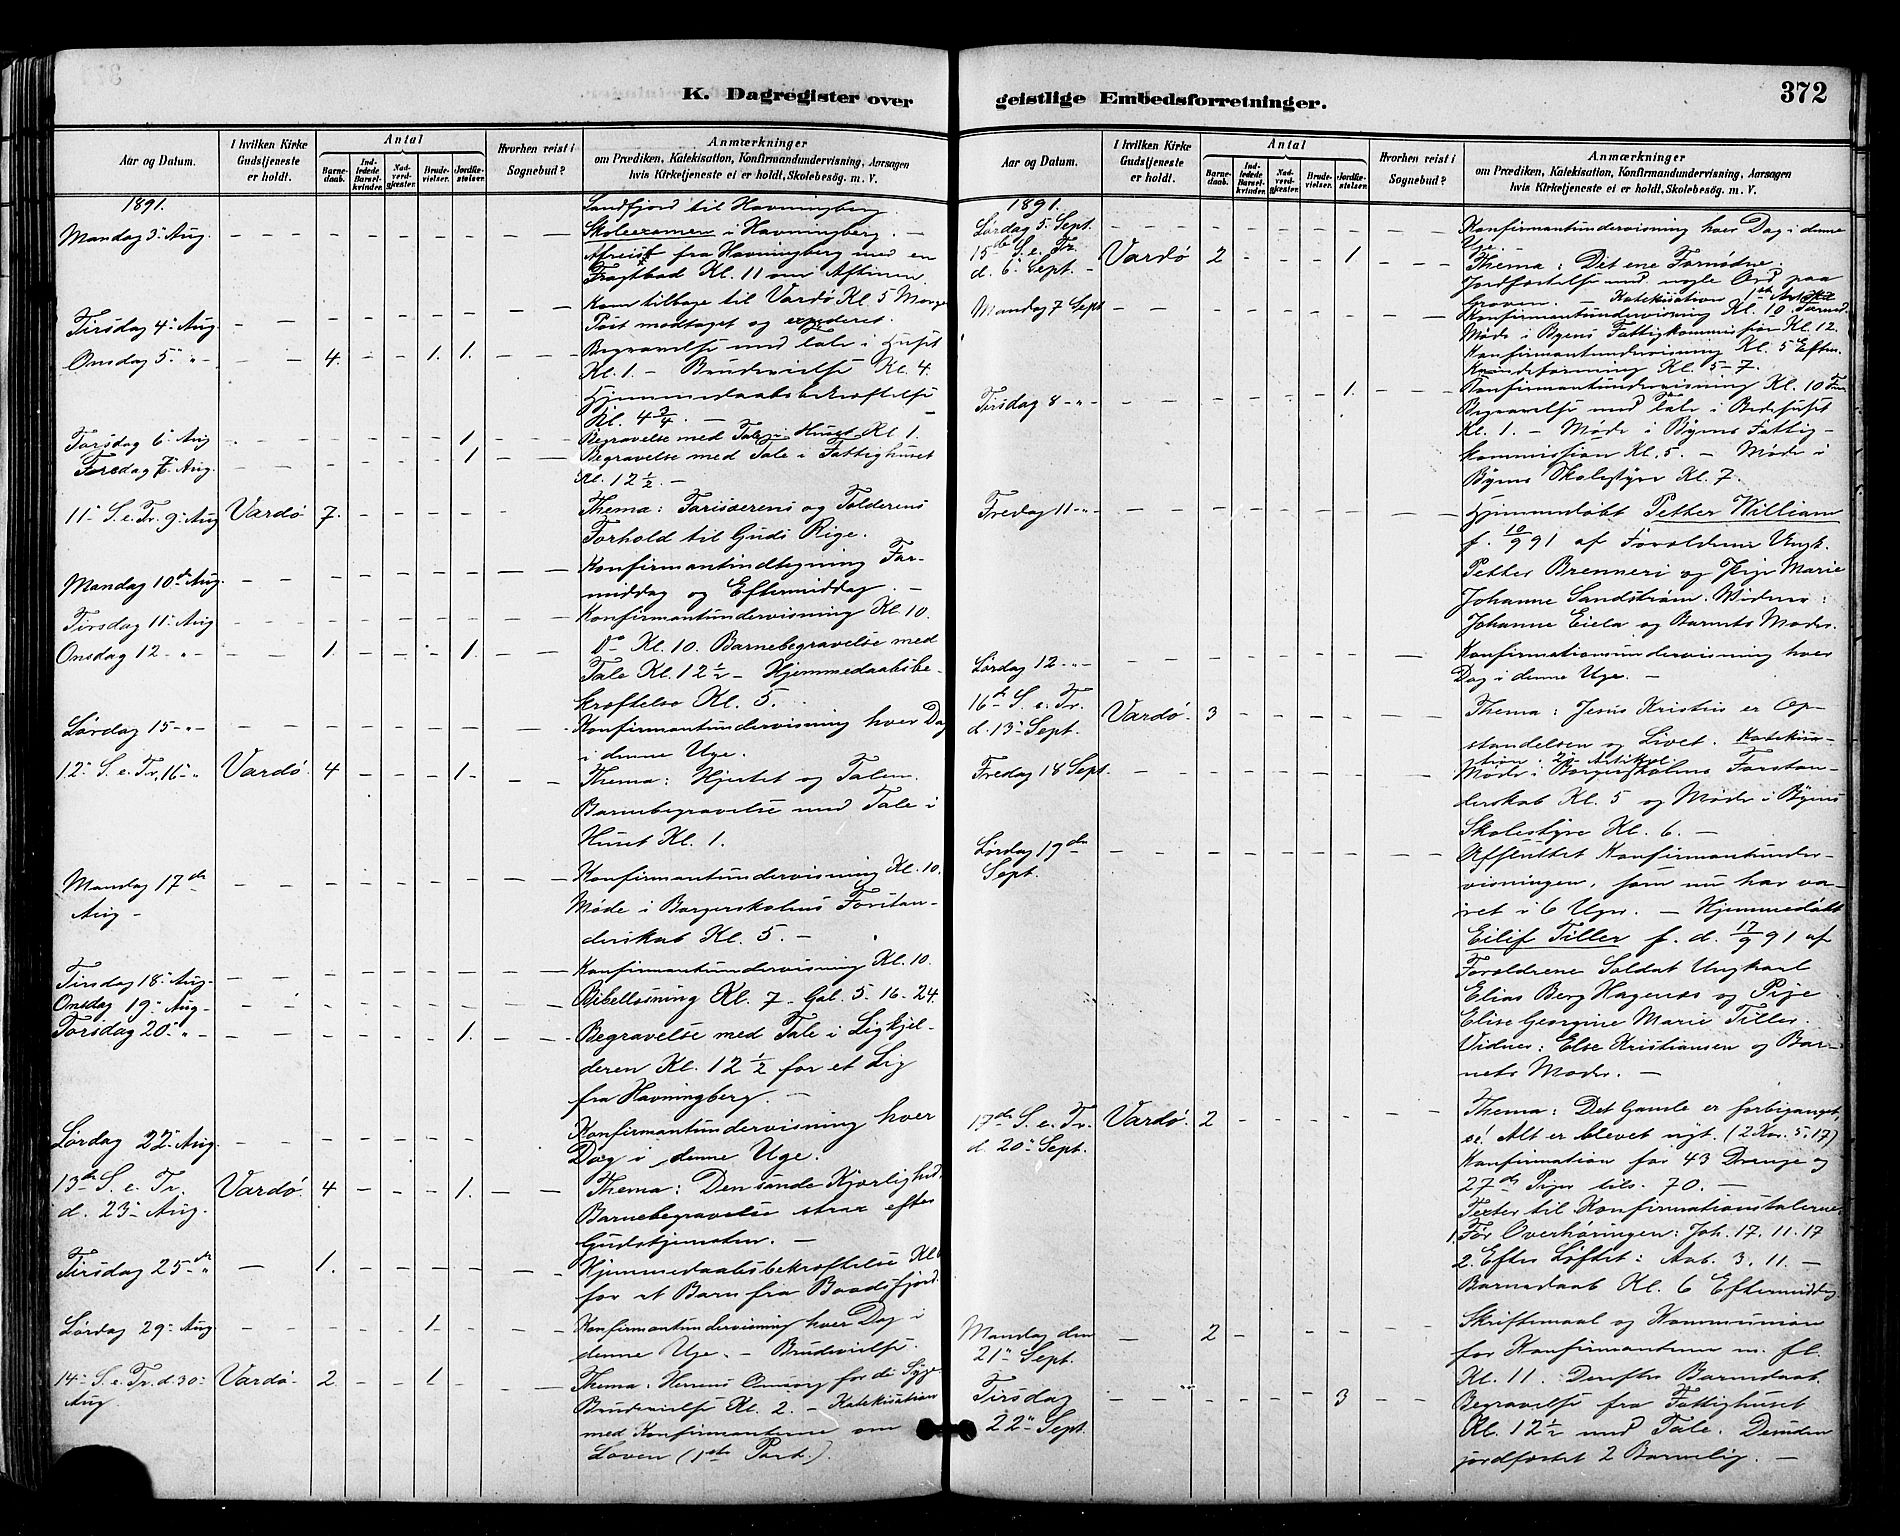 K. Dagregister over
Aar og Datum.
I hvilken Kirke Gudstjeneste er holdt.
Antal
Barnedaab.
Indledede Barselkvinder.
Nadverdgjester.
Brudevielser.
Jordfæstelser.
Hvorhen reist i Sognebud?
Anmærkninger
om Prædiken, Katekisation, Konfirmandundervisning, Aarsagen
hvis Kirketjeneste ei er holdt, Skolebesøg. m. V.
1891.
Sandfjord til Havningberg.
Mandag 3 Aug. Skoleexamen i Havningberg. —
Afreist fra Havningberg med en
Fragtbaad Kl. 11 om Aftenen
Kom tilbage til Vardø Kl. 5 Morgen
Tirsdag 4 Aug. Post modtaget og expederet.
Onsdag 5 " 4. 1. 1. Begravelse med Tale i Huset
Kl. 1. — Brudevielse Kl. 4.
Hjemmedaabsbekræftelse
Kl. 4 3/4. —
Torsdag 6 Aug 1 Begravelse med Tale i Huset Kl 1.
Fredag 7 Aug. 1 Begravelse med Tale i Fattighuset
Kl. 12 1/2. —
11 S. e. Tr. 9 Aug Vardø 7. Thema: Farisæerens og Tolderens
Forhold til Guds Rige.
Mandag 10de Aug. Konfirmantindtegning For-
middag og Eftermiddag. —
Tirsdag 11 Aug Konfirmantundervisning Kl. 10.
Onsdag 12 - " - 1. 1. Do Kl. 10. Barnebegravelse med
Tale Kl. 12 1/2 — Hjemmedaabsbe-
kræftelse Kl. 5.
Lørdag 15 - " - Konfirmantundervisning hver Dag
i denne Uge.
12 S. e. Tr. 16 " Vardø. 4 1. Thema: Hjertet og Talen.
Barnebegravelse med Tale i
Huset Kl. 1.
Mandag 17de
Aug — Konfirmantundervisning Kl. 10.
Møde i Borgerskolens Forstan-
derskab Kl. 5. —
Tirsdag 18 Aug. Konfirmantundervisning Kl. 10.
Onsdag 19 Aug. Bibellæsning Kl. 7 - Gal. 5. 16 - 24.
Torsdag 20 " 1. Begravelse med Tale i Ligkjel-
deren Kl. 12 1/2 for et Lig
fra Havningberg. —
Lørdag 22 Aug. Konfirmantundervisning hver
Dag i denne Uge.
13de S. e. Tr.
d. 23 Aug. Vardø. 4 1. Thema: Den sande Kjærlighed.
Barnebegravelse strax efter
Gudstjenesten. —
Tirsdag 25de " 1. Hjemmedaabsbekræftelse Kl. 6
for et Barn fra Baadsfjord.
Lørdag 29 Aug 1. Konfirmantundervisning hver Dag i
denne Uge. — Brudevielse.
14 S. e. Tr. d. 30
Aug. Vardø. 2 1 Thema: Herrens Omsorg for de Syge.
Brudevielse Kl. 2. — Katekisation
med Konfirmanterne om
Loven (1ste Part.)
geistlige Embedsforretninger.
372
Aar og Datum.
I hvilken Kirke Gudstjeneste er holdt.
Antal
Barnedaab.
Indledede Barselkvinder.
Nadverdgjester.
Brudevielser.
Jordfæstelser.
Hvorhen reist i Sognebud?
Anmærkninger
om Prædiken, Katekisation, Konfirmandundervisning, Aarsagen
hvis Kirketjeneste ei er holdt, Skolebesøg. m. V.
1891.
Lørdag 5 Sept. Konfirmantundervisning hver Dag i denne
Uge. —
15de S. e. Tr.
d. 6 Sept. Vardø 2 1 Thema: Det ene Fornødne.
Jordfæstelse med nogle Ord paa
Graven. — Katekisation 1ste Artikel
Mandag 7 Sept Konfirmantundervisning Kl. 10 Formd.
Møde i Byens Fattigkommission Kl. 12.
Konfirmantundervisning Kl. 5 Efterm.
Kl. 5-7.
Tirsdag 8 - " - 1. Konfirmantundervisning Kl. 10 Fm
Begravelse med Tale i Bedehuset
Kl. 1. — Møde i Byens Fattig-
kommission Kl. 5. — Møde i
Byens Skolestyre Kl. 7.
Fredag 11 - " - Hjemmedøbt Petter William
f. 10/9 91 af Forældrene Ungk.
Petter Brenneri og Pige Marie
Johanne Sandstrøm. Vidner:
Johanne Eiela og Barnets Moder.
Lørdag 12 - " - Konfirmationsundervisning hver
Dag i denne Uge. —
16de S. e. Tr.
d. 13 Sept. Vardø. 3 Thema: Jesus Kristus er Op-
standelsen og Livet. Katekisa-
tion: 2den Artikel.
Fredag 18 Sept. Møde i Borgerskolens Forstan-
derskab Kl. 5 og Møde i Byens
Skolestyre Kl. 6. —
Lørdag 19de
Sept. Afsluttet Konfirmantunder-
visningen, som nu har va-
ret i 6 Uger. — Hjemmedøbt
Eilif Tiller f. d. 17/9 91 af
Forældrene Soldat Ungkarl
Elias Berg Hagenæs og Pige
Elise Georgine Marie Tiller.
Vidner: Else Kristiansen og Bar-
nets Moder. —
17de S. e. Tr.
d. 20 Sept. Vardø. 2 Thema: Det Gamle er forbiganget,
se! Alt er blevet nyt. (2 Kor. 5. 17)
Konfirmation for 43 Drenge og
27 Piger tils. 70. —
Texter til Konfirmationstalerne
1. Før Overhøringen: Joh. 17. 11. 17
2. Efter Løftet: Aab. 3. 11. —
Barnedaab Kl. 6 Eftermiddag
Mandag den
21 Sept. — 2 Skriftemaal og Kommunion
for Konfirmanterne m. fl.
Kl. 11. Derefter Barnedaab.
Tirsdag
22 Sept. 3 Begravelse fra Fattighuset
Kl. 12 1/2 med Tale. Desuden
jordfæstet 2 Barnelig. —